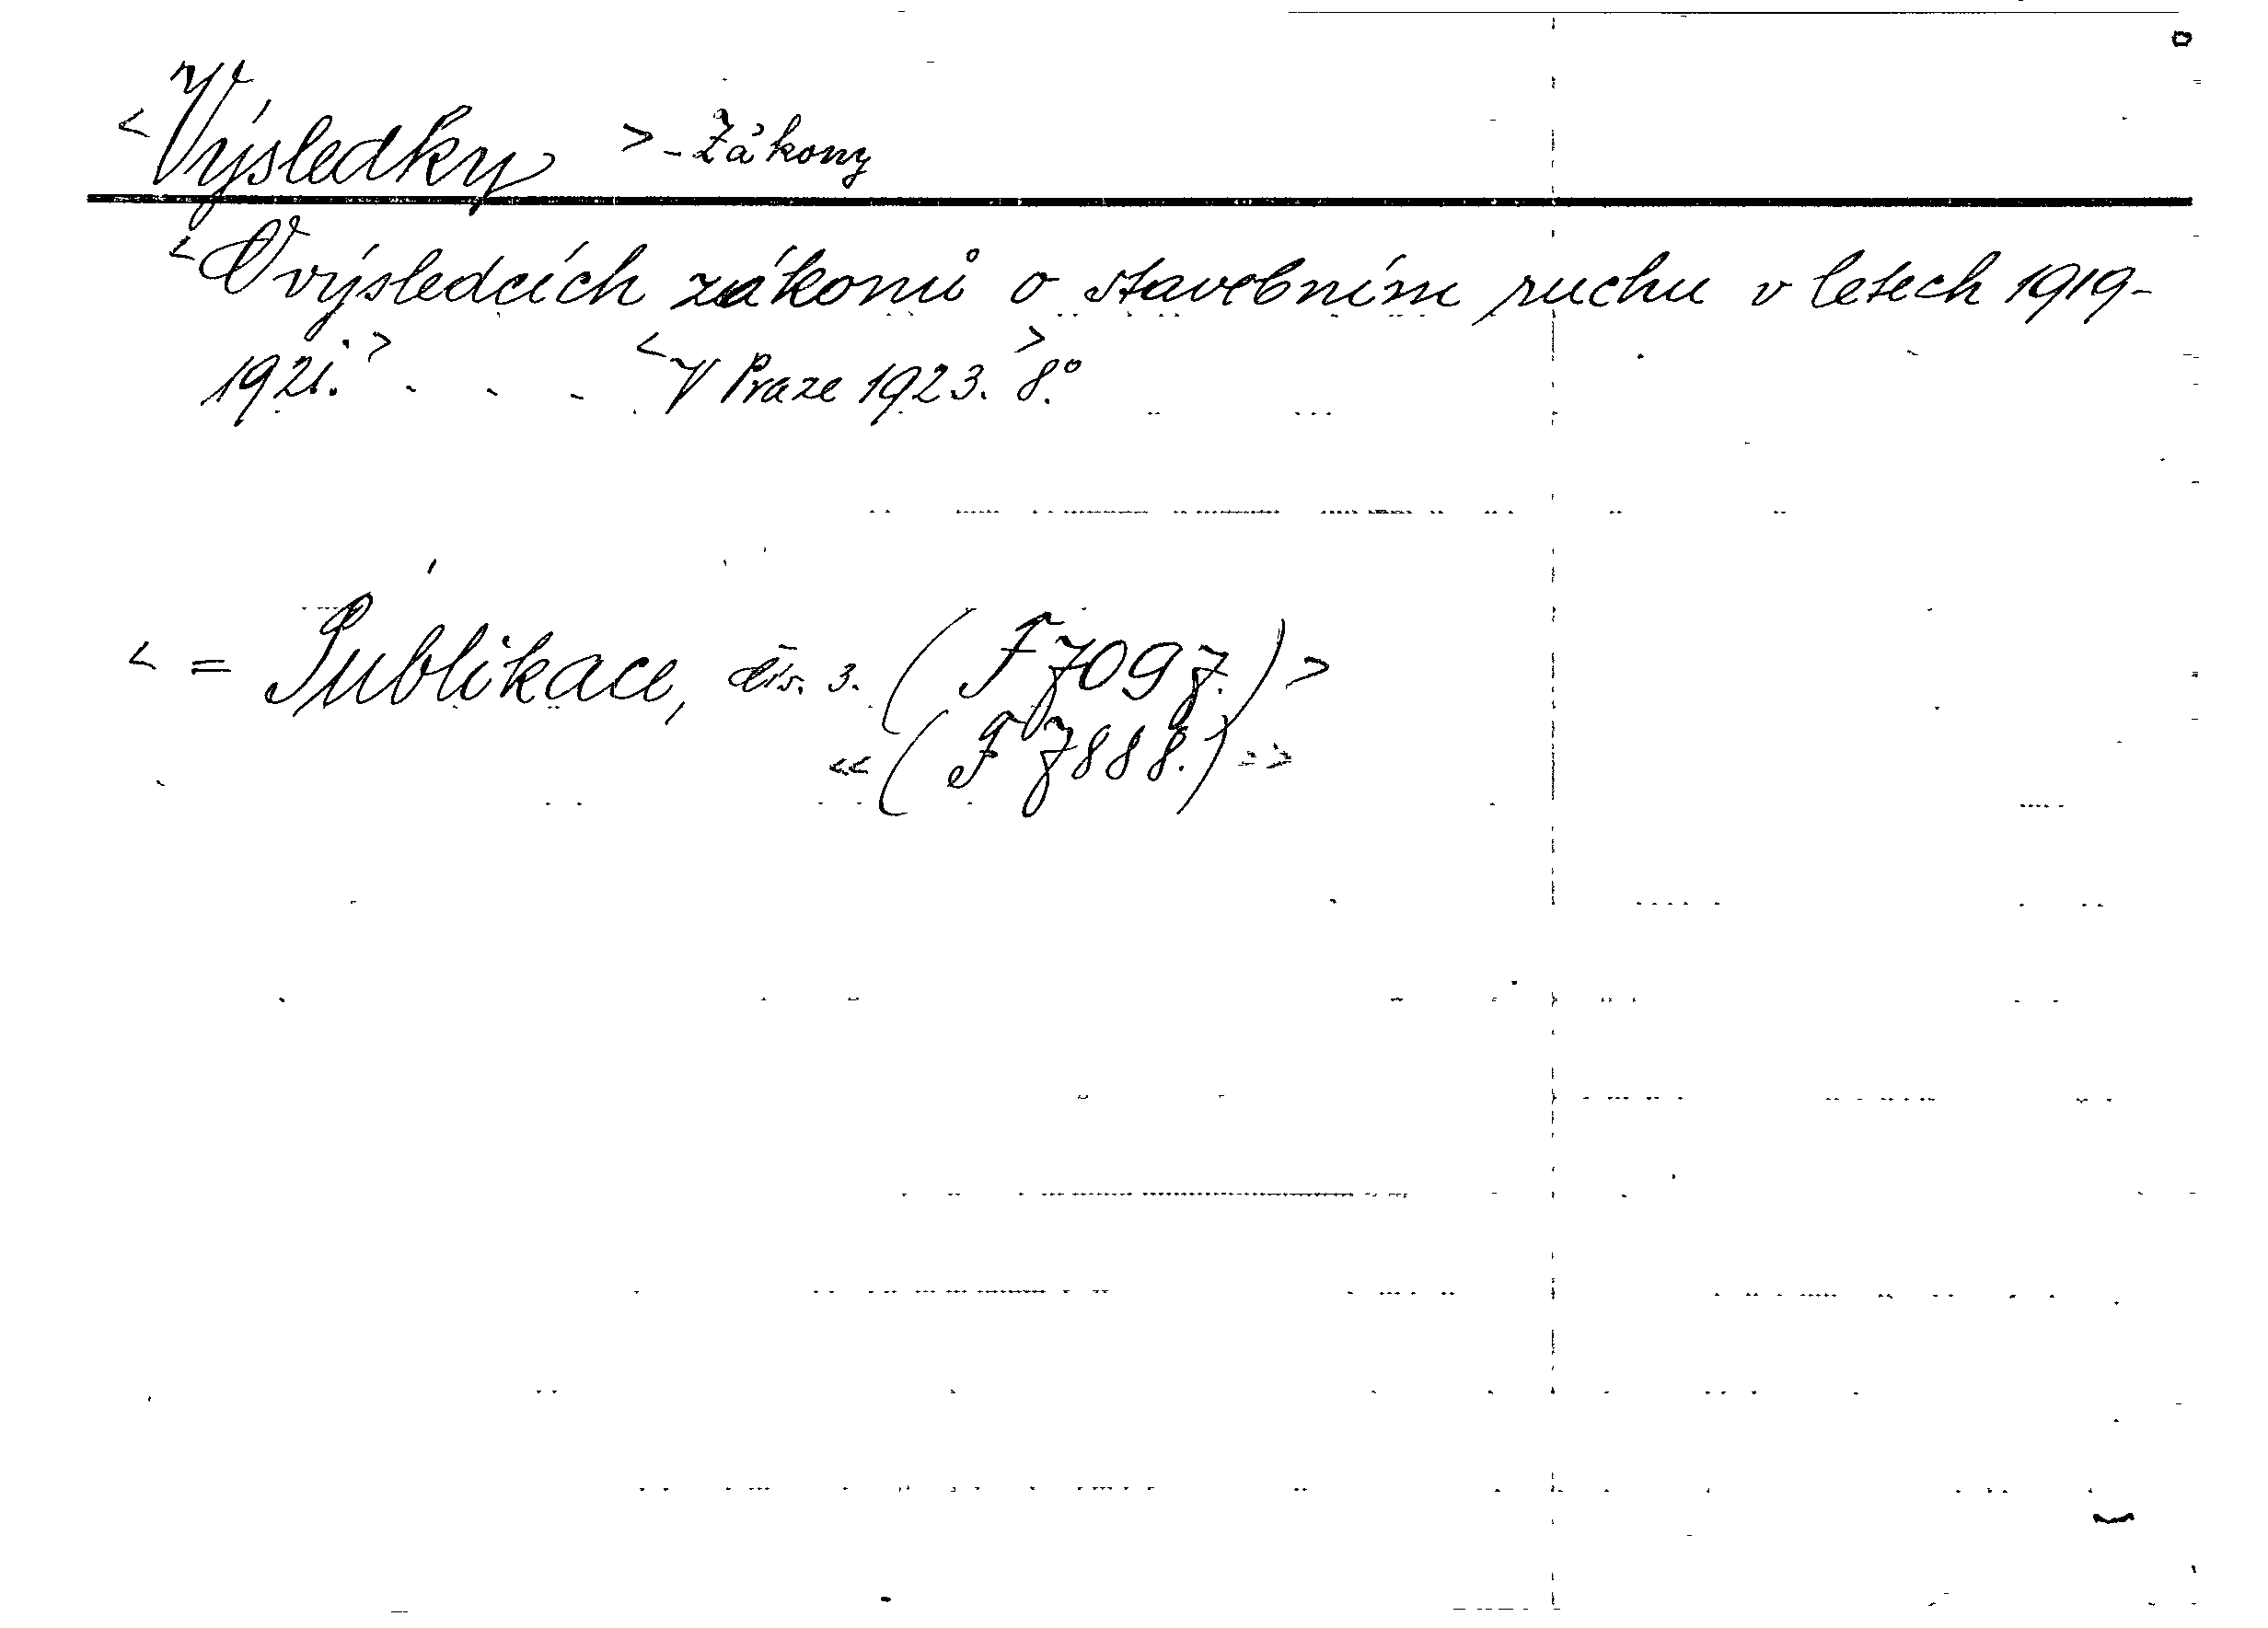 <Výsledky > - Zákony
<O výsledcích zákonů o stavebním ruchu v letech 1919-
1921.> . . . <V Praze 1923.> 8.°
< = Publikace, čís. 3. (F 7097.)>
<<(F 7888.)>>